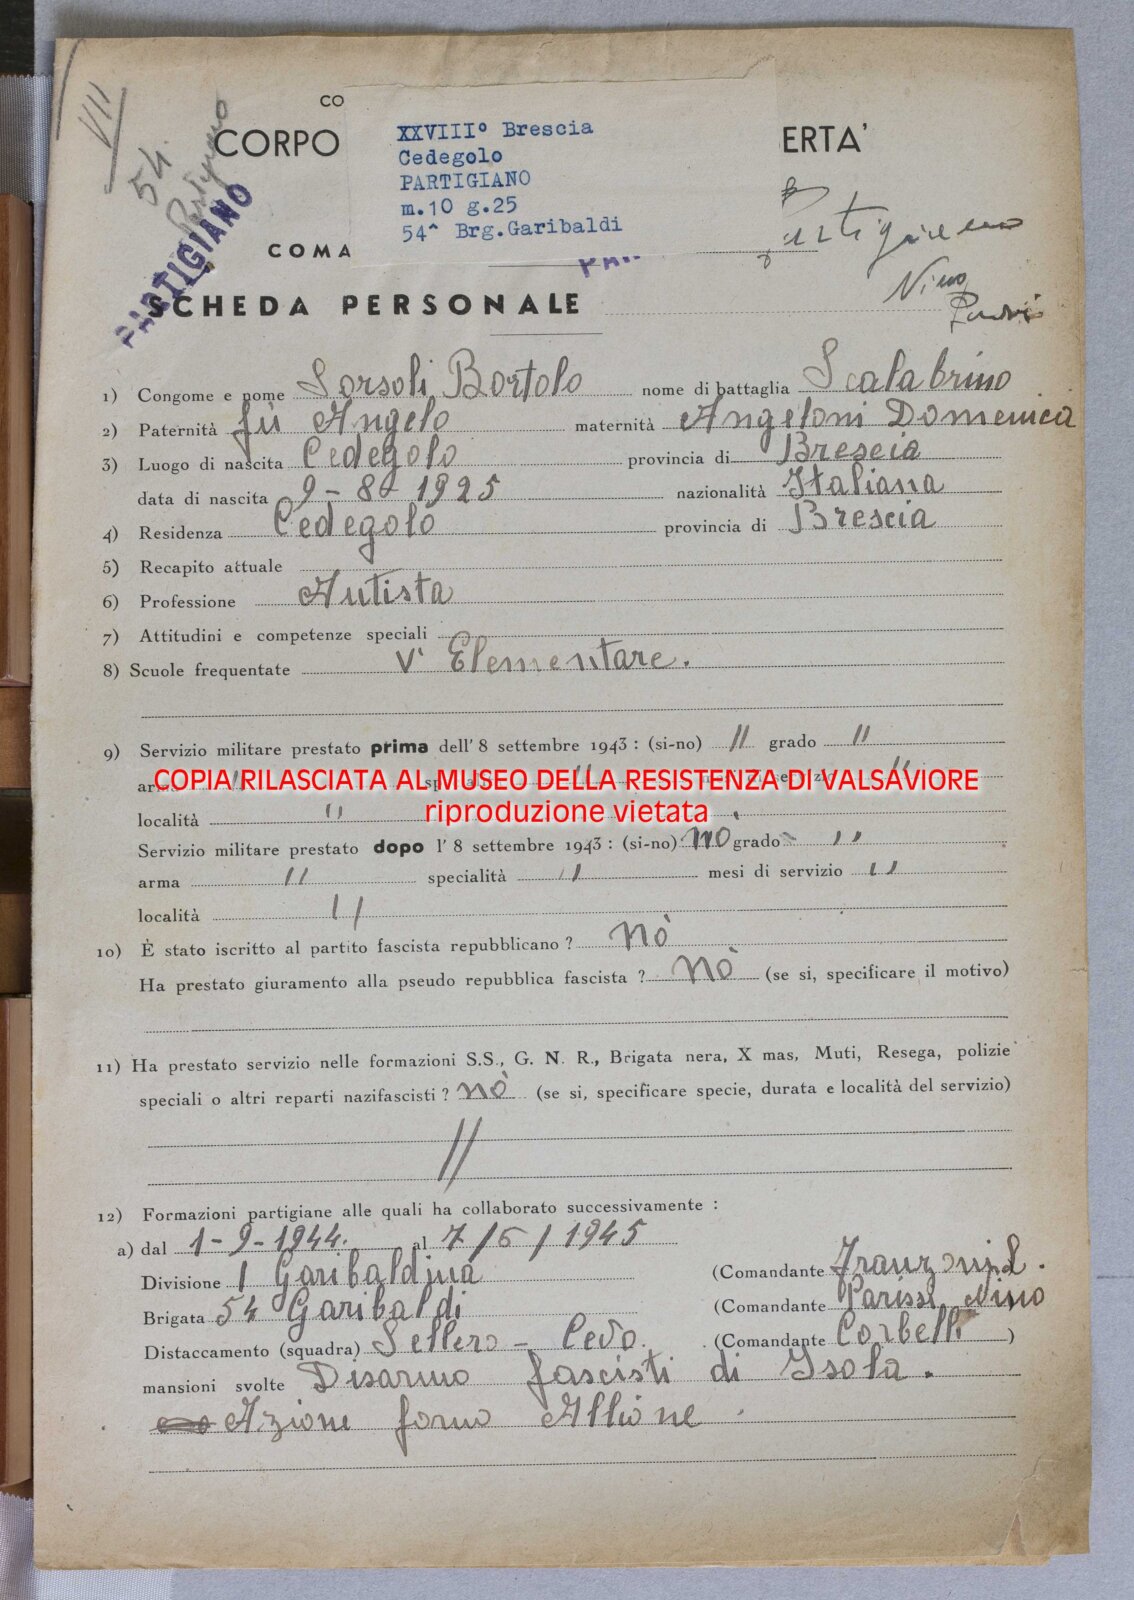 VII
54.
Partigiano
PARTIGIANO
CO
CORPO ERTA'
XXVIII° Brescia
Cedegolo
PARTIGIANO
m.10 g.25
54^ Brg.Garibaldi
COMA
Partigiano
Nino
SCHEDA PERSONALE
1) Congome e nome Sorsoli Bortolo nome di battaglia Scalabrino
2) Paternità fù Angelo maternità Angeloni Domenica
3) Luogo di nascita Cedegolo provincia di Brescia
data di nascita 9-8-1925 nazionalità Italiana
4) Residenza Cedegolo provincia di Brescia
5) Recapito attuale
6) Professione Autista
7) Attitudini e competenze speciali
8) Scuole frequentate Vª Elementare.
9) Servizio militare prestato prima dell' 8 settembre 1943 : (si-no) // grado //
arma //
COPIA RILASCIATA AL MUSEO DELLA RESISTENZA DI VALSAVIORE
riproduzione vietata
località //
Servizio militare prestato dopo l' 8 settembre 1943 : (si-no) nò grado //
arma // specialità // mesi di servizio //
località //
10) È stato iscritto al partito fascista repubblicano ? Nò
Ha prestato giuramento alla pseudo repubblica fascista ? Nò (se si, specificare il motivo)
11) Ha prestato servizio nelle formazioni S.S., G. N. R., Brigata nera, X mas, Muti, Resega, polizie
speciali o altri reparti nazifascisti ? nò (se si, specificare specie, durata e località del servizio)
//
12) Formazioni partigiane alle quali ha collaborato successivamente :
a) dal 1-9-1944. al 7/5/1945
Divisione 1 Garibaldina (Comandante Franzoni L.
Brigata 54 Garibaldi (Comandante Parissi Nino
Distaccamento (squadra) Sellero - Cevo. (Comandante Corbelli )
mansioni svolte Disarmo fascisti di Isola.
Azione forno Allione.